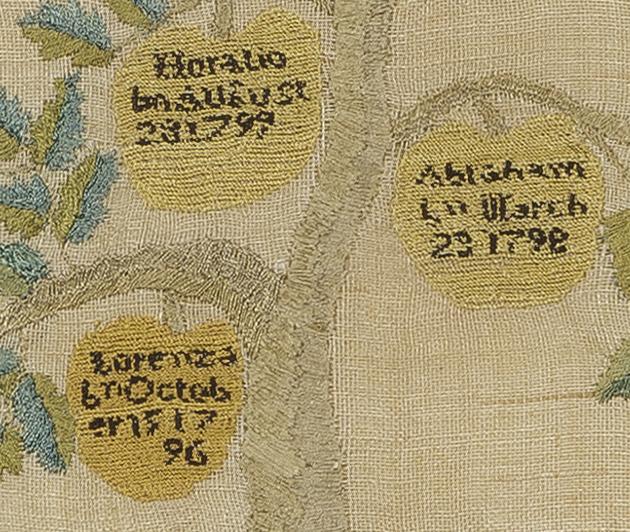 Horatio
bn August
23 1797
Abraham
bn March
23 1798
Lorenza
bn Octob
er 15 17
96